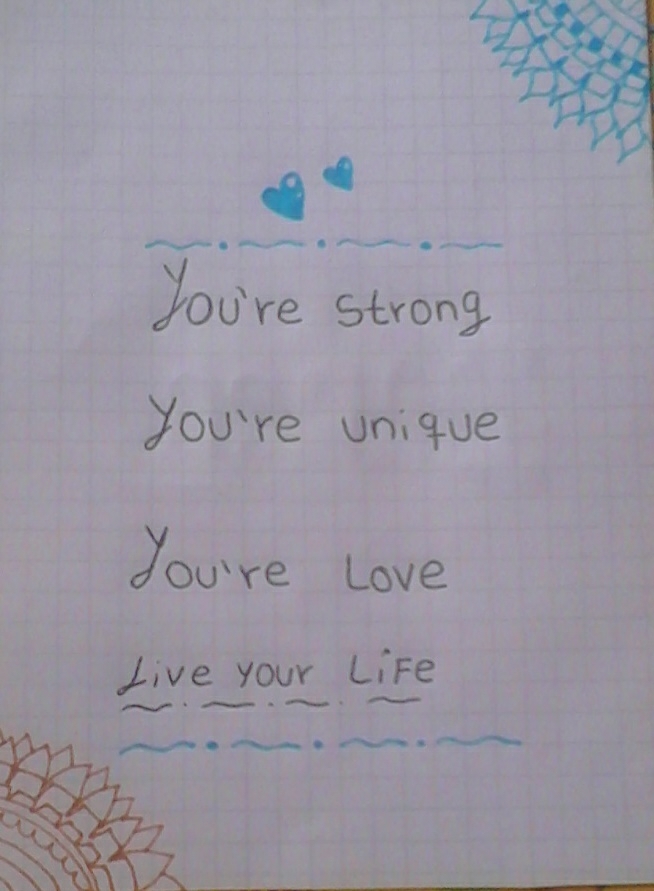 You're strong
You're unique
You're Love
Live your LiFe